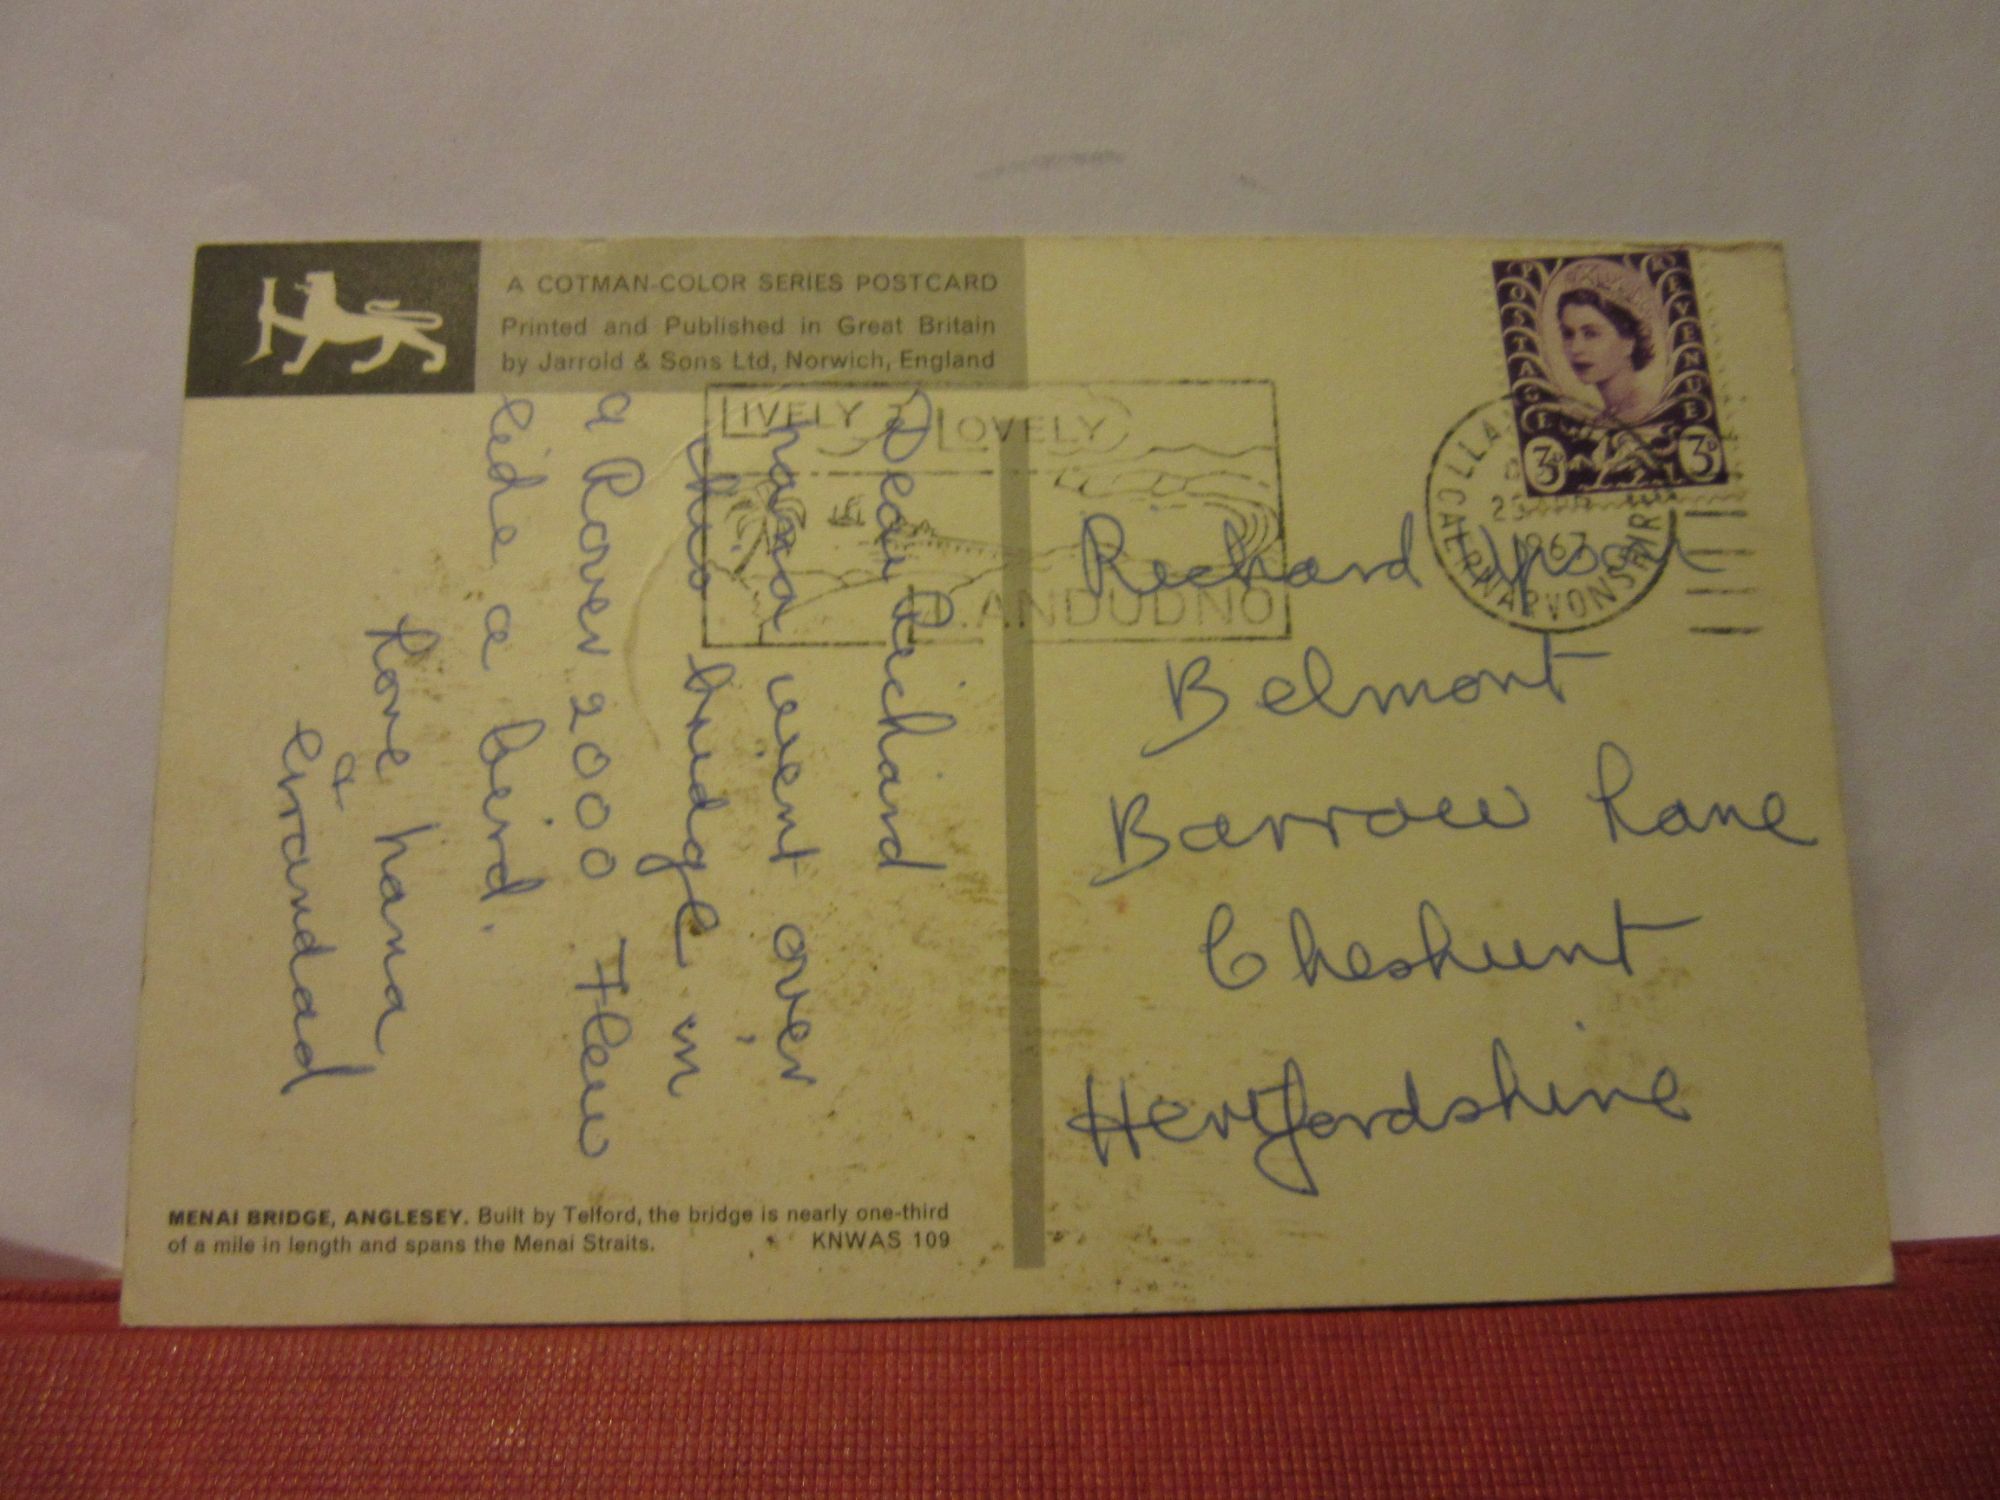 A COTMAN-COLOR SERIES POSTCARD
Printed and Published in Great Britain
by Jarrold & Sons Ltd, Norwich, England
POSTAGE REVENUE
3D 3D
LIVELY & LOVELY
LLANDUDNO
1967
CAERNARVONSHIRE
Dear Richard
nana went over
this bridge in
a Rover 2000 Flew
like a bird.
Love nana
&
grandad
Richard Wood
Belmont
Barrow Lane
Cheshunt
Hertfordshire
MENAI BRIDGE, ANGLESEY. Built by Telford, the bridge is nearly one-third
of a mile in length and spans the Menai Straits. KNWAS 109